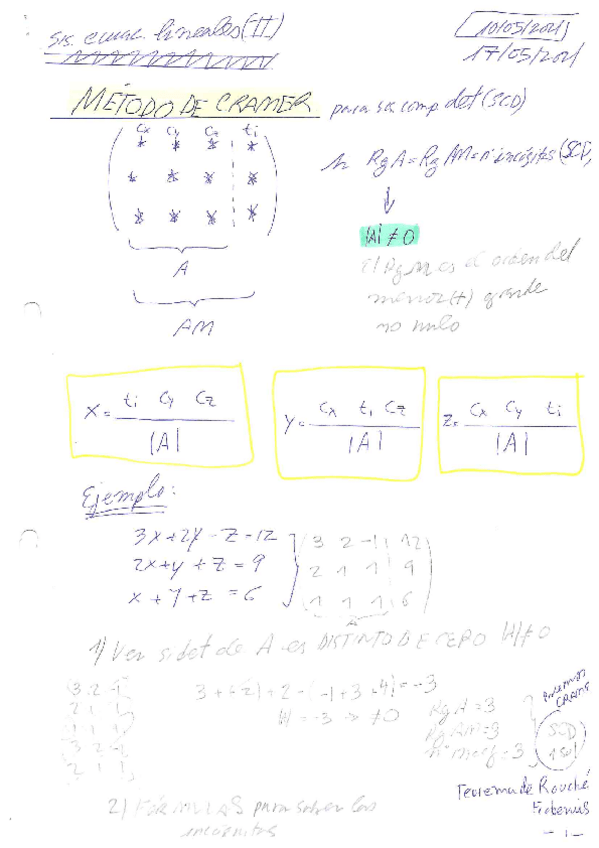 sis. ecuac. lineales (II)
10/05/2021
17/05/2021
MÉTODO DE CRAMER para sis comp det (SCD)
Cx Cy Cz ti
* * * *
* * * *
* * * *
A
AM
Rg A = Rg AM = nº incógnitas (SCD)
↓
|A| ≠ 0
El Rg M es el orden del
menor (+) grande
no nulo
x = ti Cy Cz / |A|
y = Cx ti Cz / |A|
z = Cx Cy ti / |A|
Ejemplo:
3x+2y-z=12
2x+y+z=9
x+y+z=6
3 2 -1 12
2 1 1 9
1 1 1 6
A
1) Ver si det de A es DISTINTO DE CERO |A| ≠ 0
3 2 -1
2 1 1
1 1 1
3 2 -1
2 1 1
3+(-2)+2-(-1+3+4)=-3
|A| = -3 → ≠ 0
Rg A = 3
Rg AM = 3
nº incog = 3
CRAMER
SCD
1 sol
Teorema de Rouché
Frobenius
2) FÓRMULAS para saber las
incógnitas
-1-